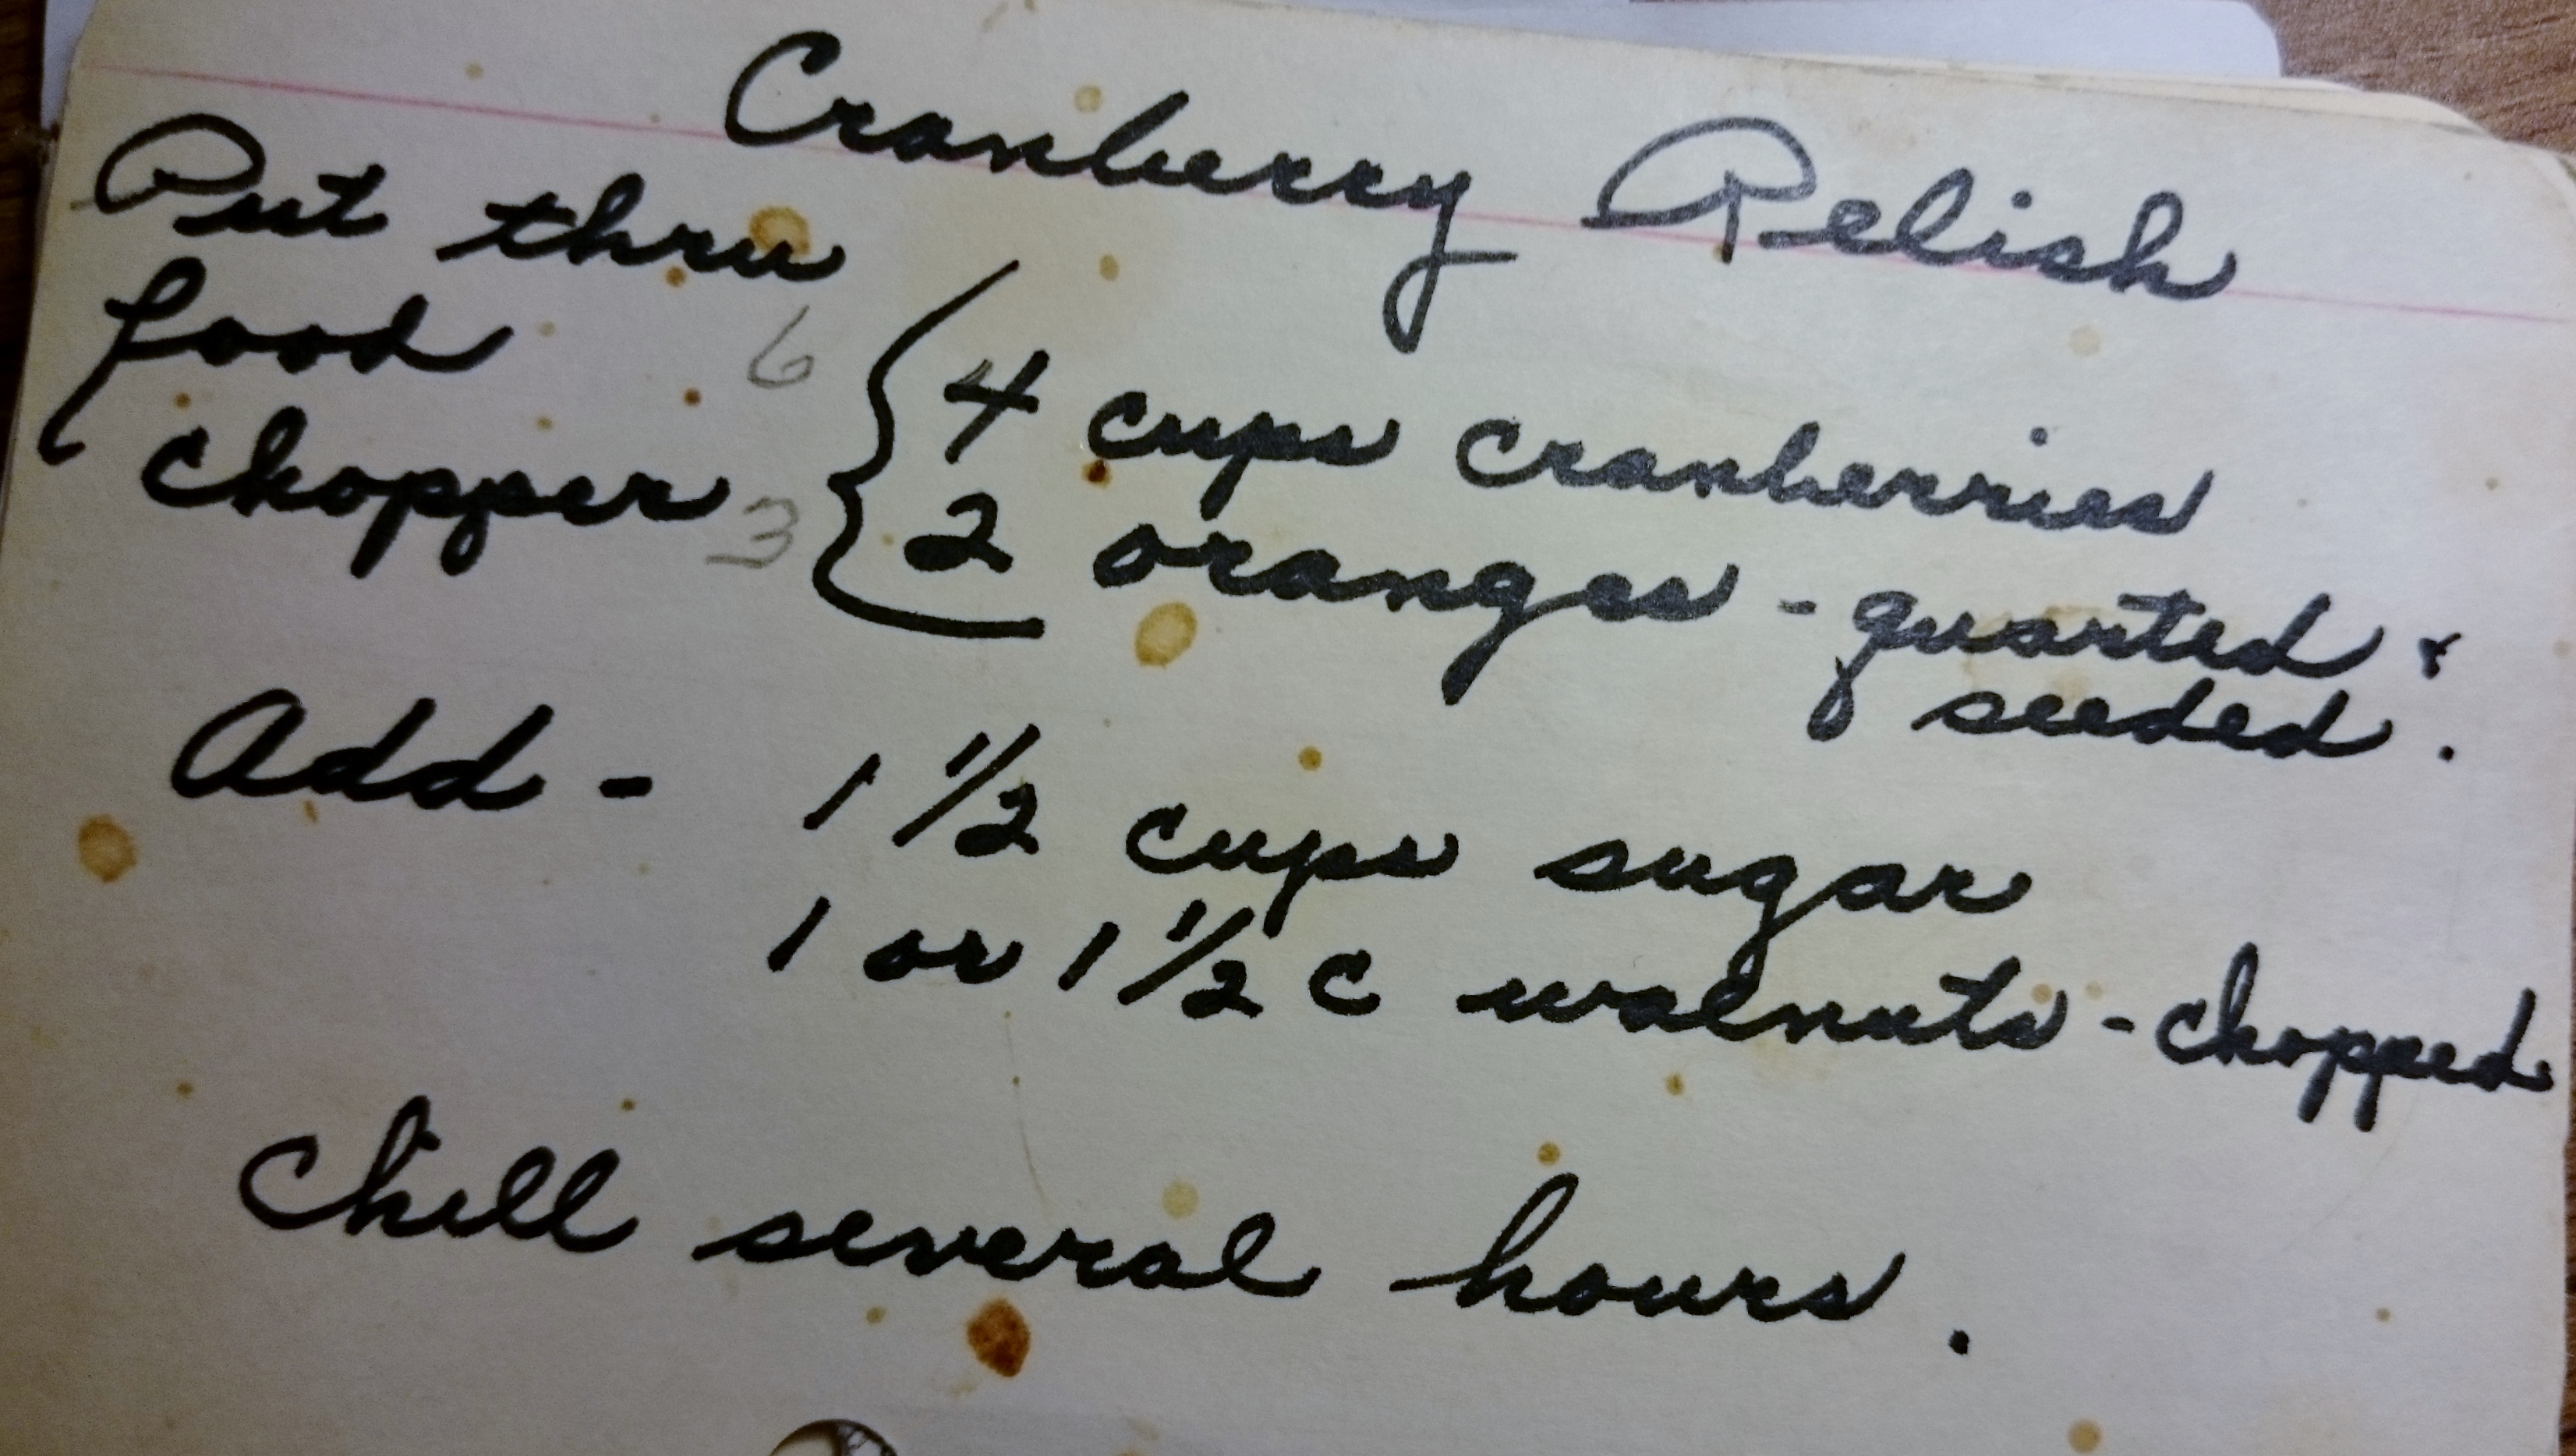 Cranberry Relish
Put thru
food
chopper
6 { 4 cups cranberries
3 2 oranges - quarted &
seeded.
Add - 1 1/2 cups sugar
1 or 1 1/2 c walnuts - chopped
Chill several hours.